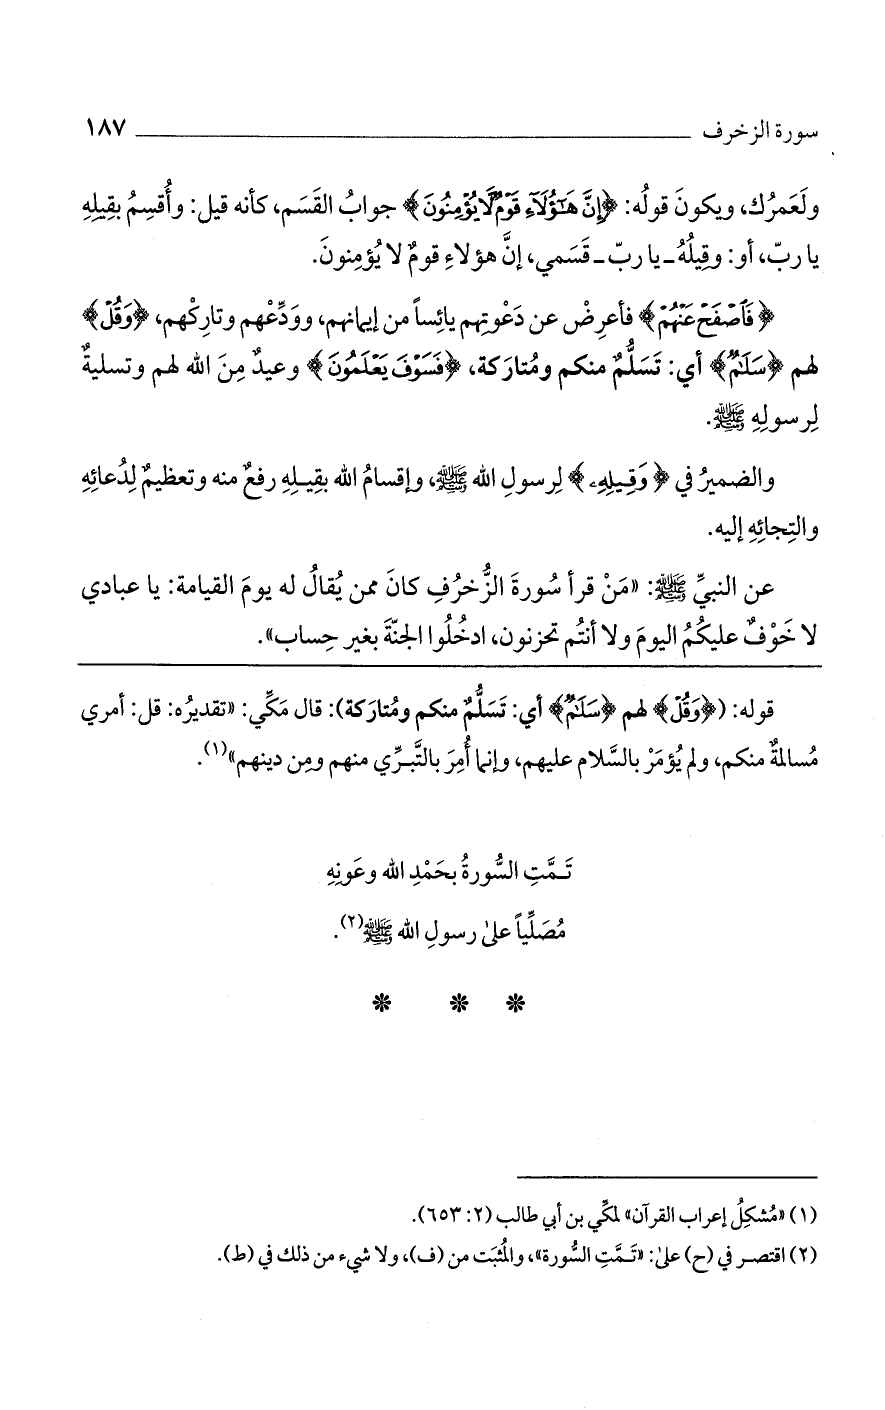 سورة الزخرف ١٨٧
ولَعَمرُك، ويكونَ قولُه: ﴿إِنَّ هَٰٓؤُلَآءِ قَوۡمٌ لَّا يُؤۡمِنُونَ﴾ جوابُ القَسَم، كأنه قيل: وأُقسِمُ بقِيلِهِ
يا ربّ، أو: وقِيلُهُ ـ يا ربّ ـ قَسَمي، إنَّ هؤلاءِ قومٌ لا يُؤمِنونَ.
﴿فَٱصۡفَحۡ عَنۡهُمۡ﴾ فأعرِضْ عن دَعْوتِهم يائِساً من إيمانهم، وودِّعْهم وتارِكْهم، ﴿وَقُلۡ﴾
لهم ﴿سَلَٰمٌ﴾ أي: تَسَلُّمٌ منكم ومُتارَكة، ﴿فَسَوۡفَ يَعۡلَمُونَ﴾ وعيدٌ مِنَ الله لهم وتسليةٌ
لِرسولِهِ ﷺ.
والضميرُ في ﴿وَقِيلِهِۦ﴾ لِرسولِ الله ﷺ، وإقسامُ الله بقِيلِهِ رفعٌ منه وتعظيمٌ لِدُعائِهِ
والتِجائِهِ إليه.
عن النبيِّ ﷺ: «مَنْ قرأ سُورةَ الزُّخرُفِ كانَ ممن يُقالُ له يومَ القيامة: يا عبادي
لا خَوْفٌ عليكُمُ اليومَ ولا أنتُم تحزنون، ادخُلُوا الجنّةَ بغير حِساب».
قوله: (﴿وَقُلۡ﴾ لهم ﴿سَلَٰمٌ﴾ أي: تَسَلُّمٌ منكم ومُتارَكة): قال مَكِّي: «تقديرُه: قل: أمري
مُسالمةٌ منكم، ولم يُؤمَرْ بالسَّلام عليهم، وإنما أُمِرَ بالتَّبـرِّي منهم ومِن دينهم»(١).
تَـمَّتِ السُّورةُ بحَمْدِ الله وعَونِهِ
مُصَلِّياً علىٰ رسولِ الله ﷺ(٢).
* * *
(١) «مُشكِلُ إعراب القرآن» لمكِّي بن أبي طالب (٢: ٦٥٣).
(٢) اقتصـر في (ح) علىٰ: «تَـمَّتِ السُّورة»، والمُثبَت من (ف)، ولا شيء من ذلك في (ط).